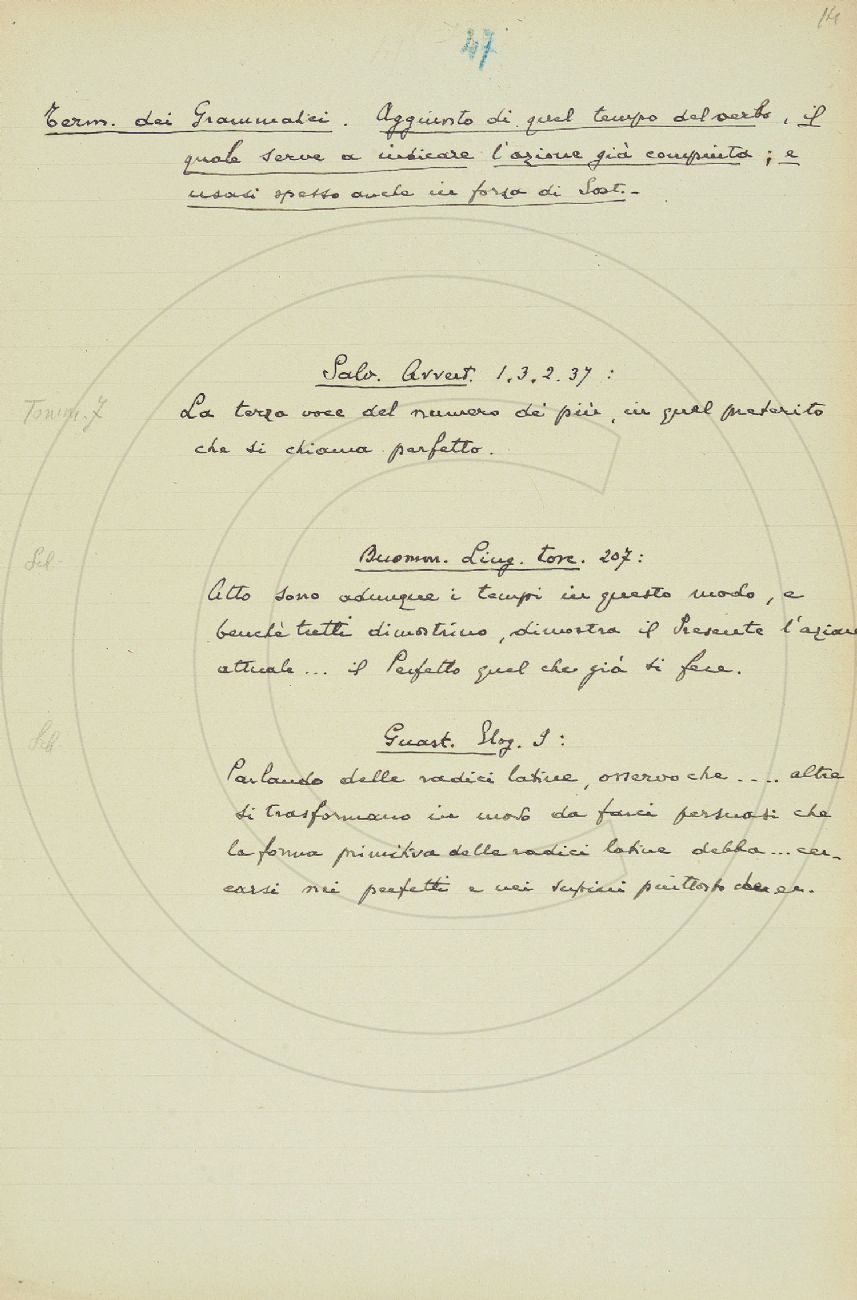 47
Term. dei Grammatici. Aggiunto di quel tempo del verbo, il
quale serve a indicare l'azione già compiuta; e
usasi spesso anche in forza di Sost.-
Salv. Avvert. 1.3.2.37:
Tomm. 7
La terza voce del numero de' più, in quel preterito
che si chiama perfetto.
Buomm. Ling. tosc. 207:
Atto sono adunque i tempi in questo modo, e
benchè tutti dimostrino, dimostra il Presente l'azione
attuale... il Perfetto quel che già si fece.
Guast. Elog. I:
Parlando delle radici latine, osservo che .... altre
si trasformano in modo da farci persuasi che
la forma primitiva delle radici latine debba... cer-
carsi nei perfetti e nei supini piuttosto che